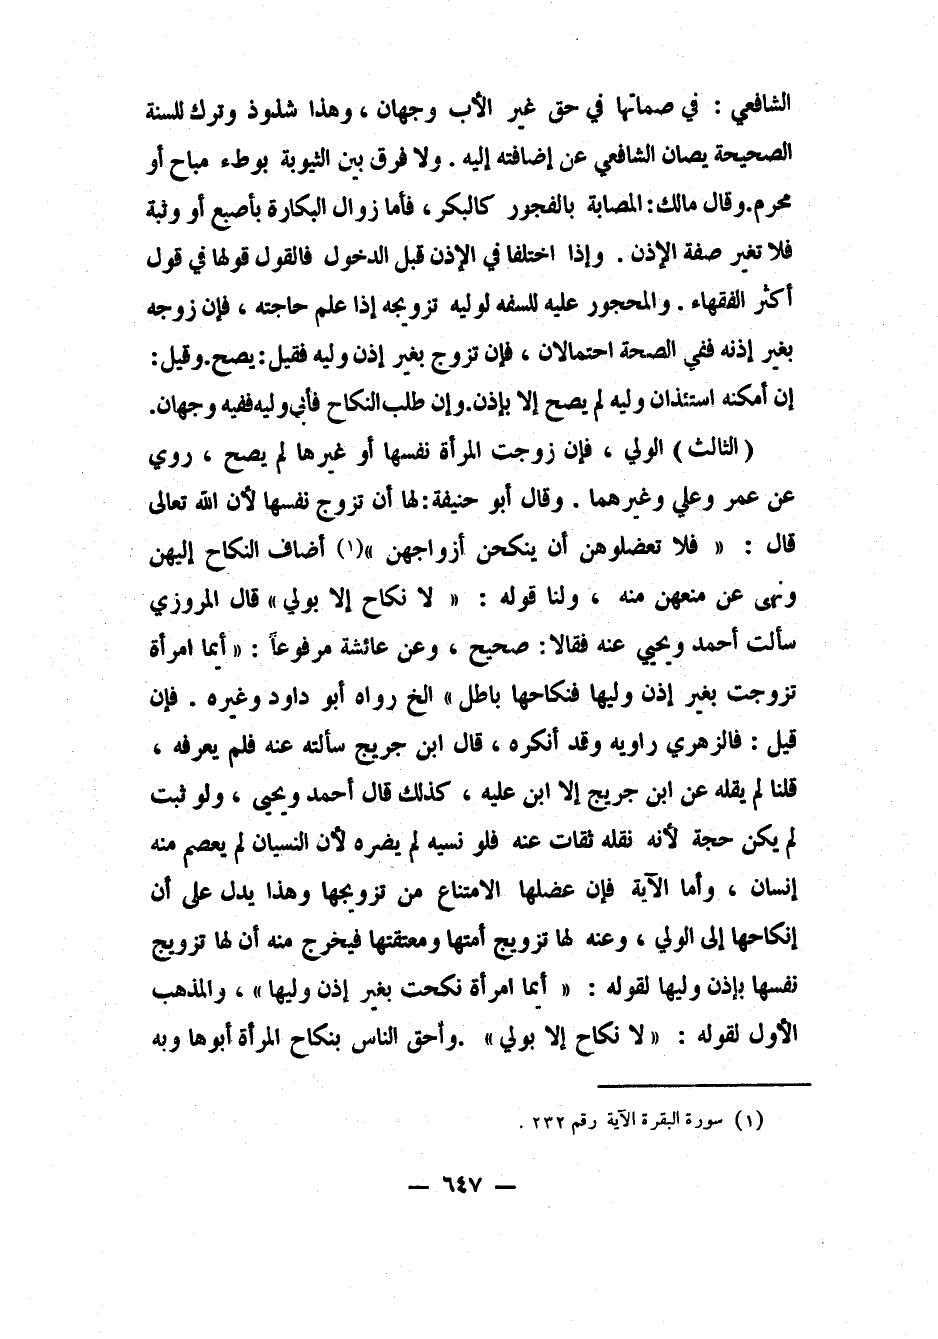 الشافعي : في صماتها في حق غير الأب وجهان ، وهذا شذوذ وترك للسنة
الصحيحة يصان الشافعي عن إضافته إليه . ولا فرق بين الثيوبة بوطء مباح أو
محرم.وقال مالك: المصابة بالفجور كالبكر ، فأما زوال البكارة بأصبع أو وثبة
فلا تغير صفة الإذن . وإذا اختلفا في الإذن قبل الدخول فالقول قولها في قول
أكثر الفقهاء . والمحجور عليه للسفه لوليه تزويجه إذا علم حاجته ، فإن زوجه
بغير إذنه ففي الصحة احتمالان ، فإن تزوج بغير إذن وليه فقيل: يصح.وقيل:
إن أمكنه استئذان وليه لم يصح إلا بإذن.وإن طلب النكاح فأبى وليه ففيه وجهان.
( الثالث ) الولي ، فإن زوجت المرأة نفسها أو غيرها لم يصح ، روي
عن عمر وعلي وغيرهما . وقال أبو حنيفة: لها أن تزوج نفسها لأن الله تعالى
قال : « فلا تعضلوهن أن ينكحن أزواجهن »(١) أضاف النكاح إليهن
ونهى عن منعهن منه ، ولنا قوله : « لا نكاح إلا بولي» قال المروزي
سألت أحمد ويحيى عنه فقالا: صحيح ، وعن عائشة مرفوعاً : « أيما امرأة
تزوجت بغير إذن وليها فنكاحها باطل» الخ رواه أبو داود وغيره . فإن
قيل : فالزهري راويه وقد أنكره ، قال ابن جريج سألته عنه فلم يعرفه ،
قلنا لم يقله عن ابن جريج إلا ابن عليه ، كذلك قال أحمد ويحيى ، ولو ثبت
لم يكن حجة لأنه نقله ثقات عنه فلو نسيه لم يضره لأن النسيان لم يعصم منه
إنسان ، وأما الآية فإن عضلها الامتناع من تزويجها وهذا يدل على أن
إنكاحها إلى الولي ، وعنه لها تزويج أمتها ومعتقتها فيخرج منه أن لها تزويج
نفسها بإذن وليها لقوله : « أيما امرأة نكحت بغير إذن وليها» ، والمذهب
الأول لقوله : « لا نكاح إلا بولي» .وأحق الناس بنكاح المرأة أبوها وبه
(١) سورة البقرة الآية رقم ٢٣٢ .
— ٦٤٧ —